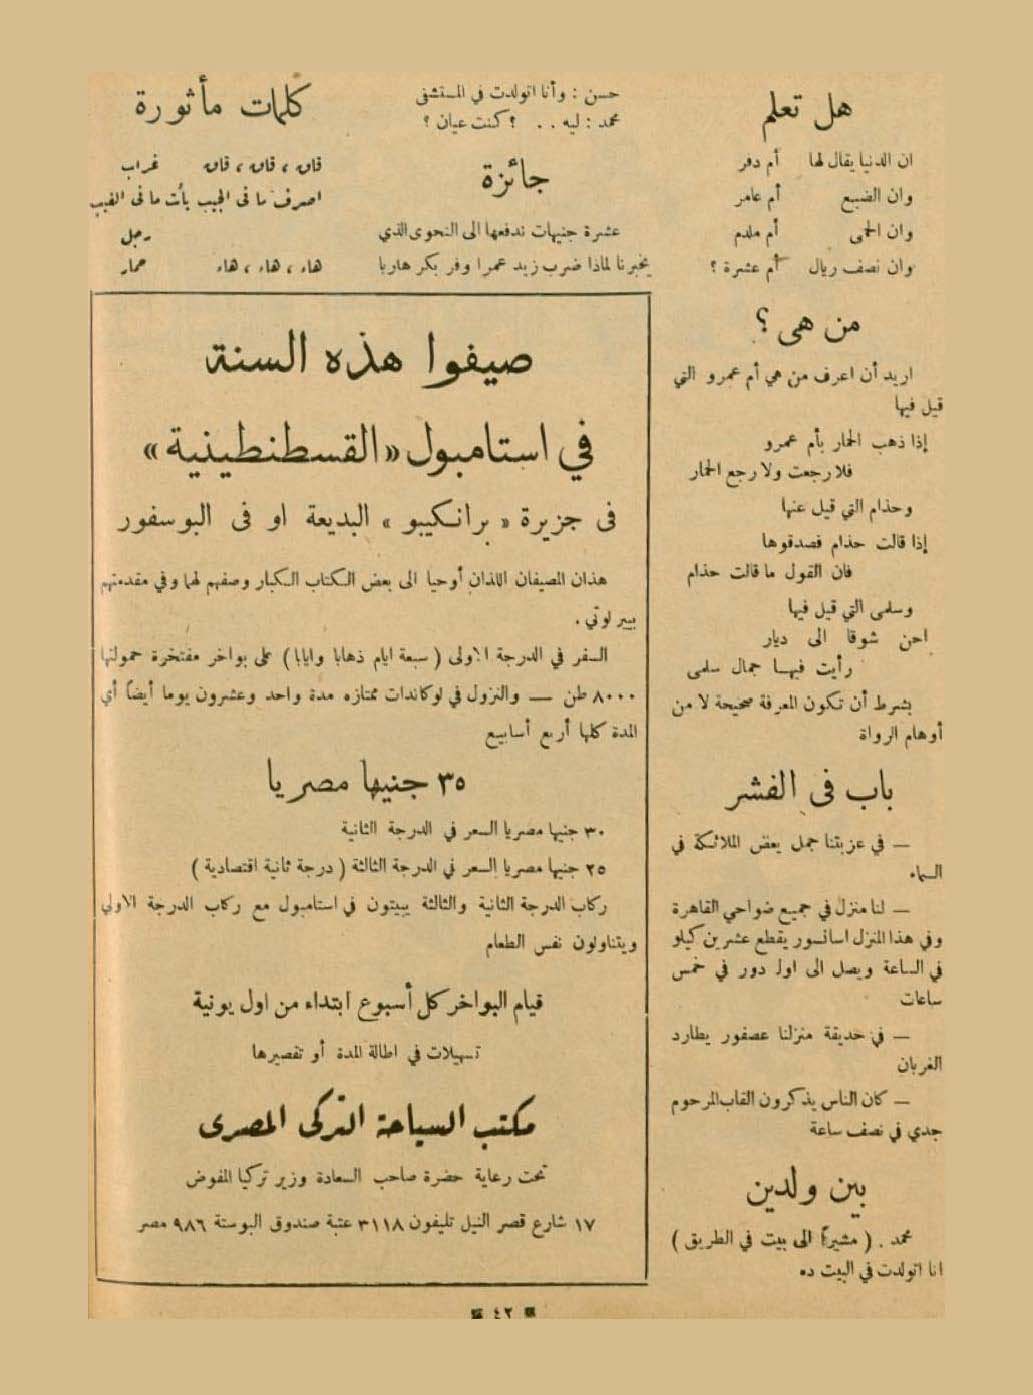 هل تعلم
ان الدنيا يقال لها أم دفر
وان الضبع أم عامر
وان الحمى أم ملدم
وان نصف ريال أم عشرة ؟
من هى ؟
اريد أن اعرف من هي أم عمرو التي
قيل فيها
إذا ذهب الحمار بأم عمرو
فلا رجعت ولا رجع الحمار
وحذام التي قيل عنها
إذا قالت حذام فصدقوها
فان القول ما قالت حذام
وسلمى التي قيل فيها
احن شوقا الى ديار
رأيت فيها جمال سلمى
بشرط أن تكون المعرفة صحيحة لا من
أوهام الرواة
باب فى الفشر
— في عزبتنا جمل يعض الملائكة في
السماء
— لنا منزل في جميع ضواحي القاهرة
وفي هذا المنزل اسانسور يقطع عشرين كيلو
في الساعة ويصل الى اول دور في خمس
ساعات
— في حديقة منزلنا عصفور يطارد
الغربان
— كان الناس يذكرون القاب المرحوم
جدي في نصف ساعة
بين ولدين
محمد . ( مشيراً الى بيت في الطريق )
انا اتولدت في البيت ده
حسن : وأنا اتولدت في المستشفى
محمد : ليه . . ؟ كنت عيان ؟
جائزة
عشرة جنيهات ندفعها الى النحوى الذي
يخبرنا لماذا ضرب زيد عمرا وفر بكر هاربا
كلمات مأثورة
قاق ، قاق ، قاق غراب
اصرف ما فى الجيب يأت ما فى الغيب
رجل
هاء ، هاء ، هاء حمار
صيفوا هذه السنة
في استامبول «القسطنطينية»
فى جزيرة « برانكيبو » البديعة او فى البوسفور
هذان المصيفان اللذان أوحيا الى بعض الكتاب الكبار وصفهم لهما وفي مقدمتهم
بيير لوتي .
السفر في الدرجة الاولى ( سبعة ايام ذهابا وايابا ) على بواخر مفتخرة حمولتها
٨٠٠٠ طن — والنزول في لوكاندات ممتازه مدة واحد وعشرون يوما أيضاً أي
المدة كلها أربع أسابيع
٣٥ جنيها مصريا
٣٠ جنيها مصريا السعر في الدرجة الثانية
٢٥ جنيها مصريا السعر في الدرجة الثالثة ( درجة ثانية اقتصادية )
ركاب الدرجة الثانية والثالثة يبيتون في استامبول مع ركاب الدرجة الاولى
ويتناولون نفس الطعام
قيام البواخر كل أسبوع ابتداء من اول يونية
تسهيلات في اطالة المدة أو تقصيرها
مكتب السياحة التركى المصرى
تحت رعاية حضرة صاحب السعادة وزير تركيا المفوض
١٧ شارع قصر النيل تليفون ٣١١٨ عتبة صندوق البوستة ٩٨٦ مصر
٤٢